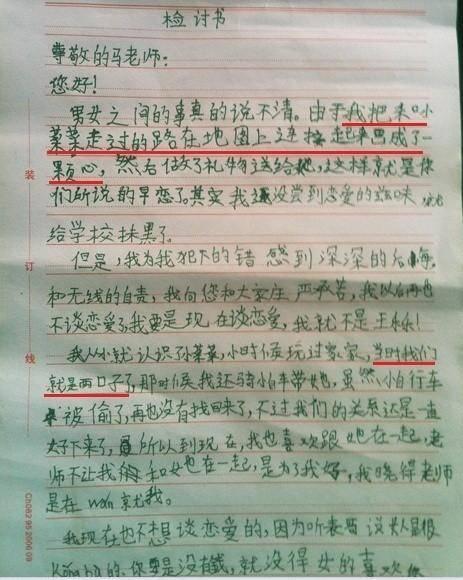 检讨书
尊敬的马老师:
您好!
男女之间的事真的说不清。由于我把和小
菜菜走过的路在地图上连接起来画成了一
颗心,然后做了礼物送给她,这样就是你
们所说的早恋了。其实我还没尝到恋爱的滋味,就
给学校抹黑了。
但是,我为我犯下的错感到深深的后悔
和无线的自责,我向您和大家庄严承若,我以后再也
不谈恋爱了,我要是现在谈恋爱,我就不是王乐!
我从小就认识孙菜菜,小时候玩过家家,当时我们
就是两口子了,那时候我还骑小白车带她,虽然小白行车
被偷了,再也没有找回来了,不过我们的关系还是一直
好下来了,所以到现在,我也喜欢跟她在一起,老
师不让我和她在一起,是为了我好,我晓得老师
是在wan救我。
我现在也不想谈恋爱的,因为听表哥说女人是很
的,你要是没有钱,就没得女的喜欢你
装
订
线